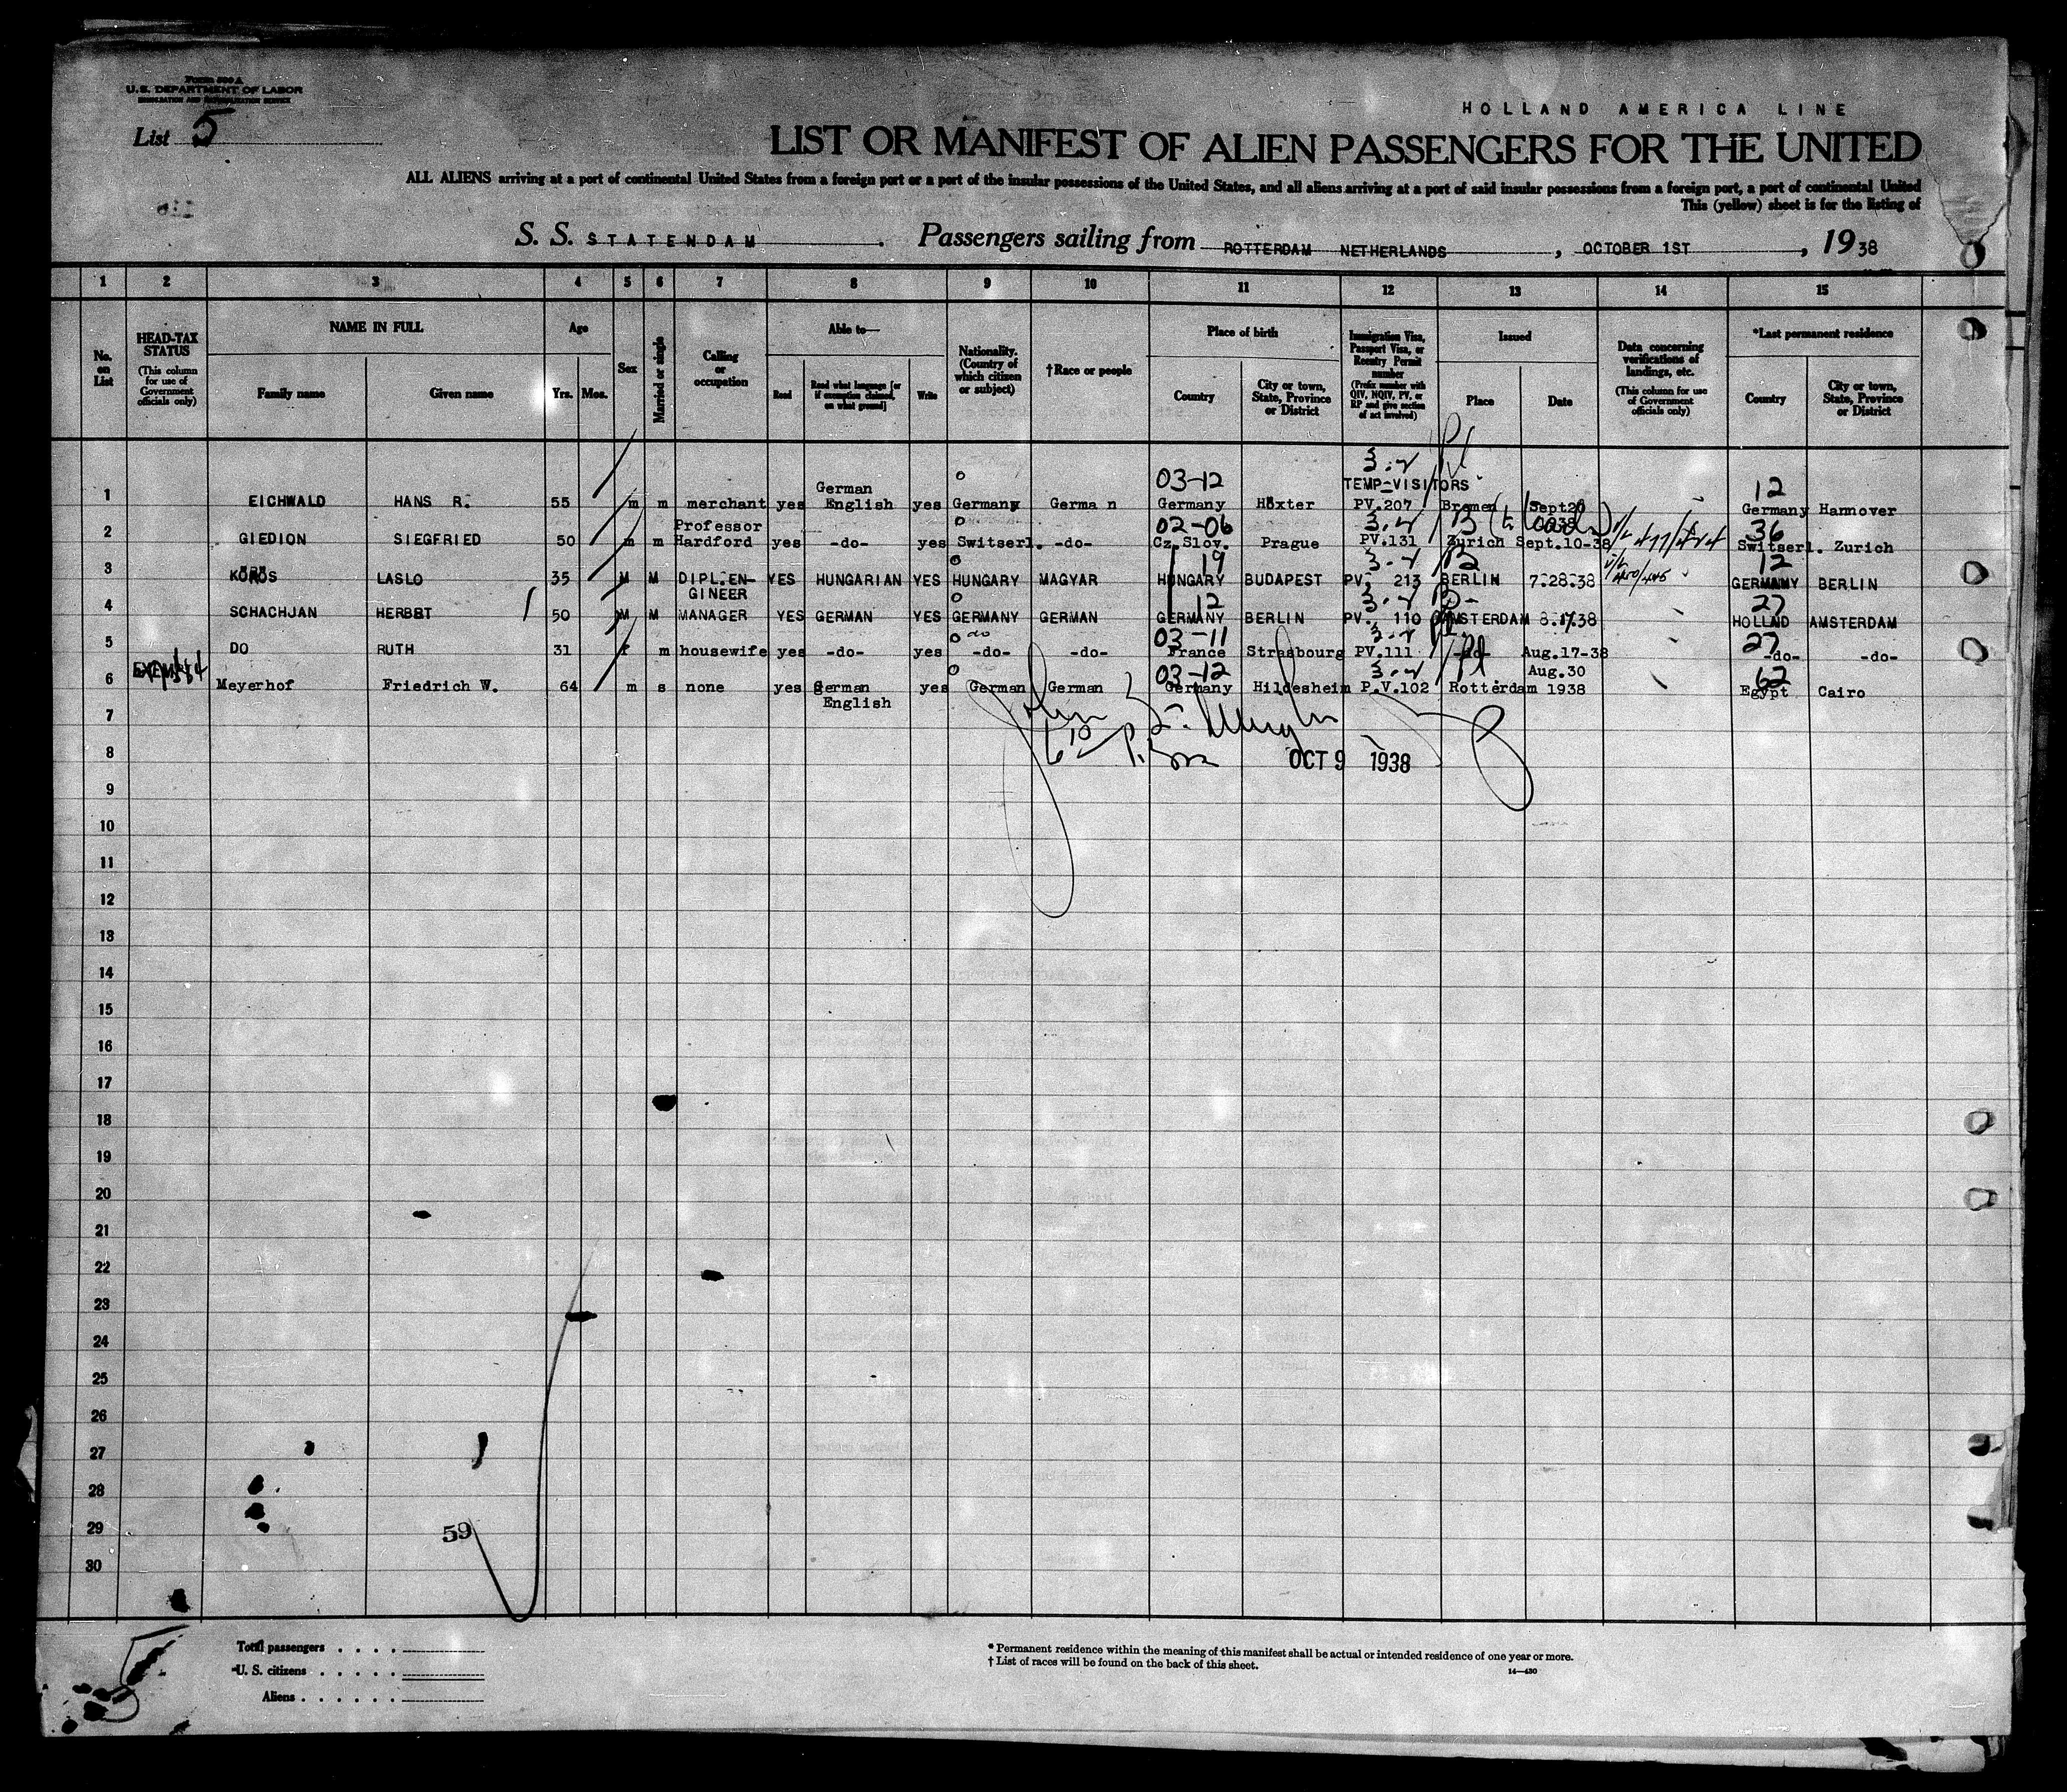 Form 500 A
U. S. DEPARTMENT OF LABOR
IMMIGRATION AND NATURALIZATION SERVICE
List 5
HOLLAND AMERICA LINE
LIST OR MANIFEST OF ALIEN PASSENGERS FOR THE UNITED
ALL ALIENS arriving at a port of continental United States from a foreign port or a port of the insular possessions of the United States, and all aliens arriving at a port of said insular possessions from a foreign port, a port of continental United
This (yellow) sheet is for the listing of
S. S. STATENDAM . Passengers sailing from ROTTERDAM NETHERLANDS , OCTOBER 1ST , 1938
1 2 3 4 5 6 7 8 9 10 11 12 13 14 15
No. on List
HEAD-TAX STATUS (This column for use of Government officials only)
NAME IN FULL
Family name
Given name
Age
Yrs. Mos.
Sex
Married or single
Calling or occupation
Able to—
Read
Read what language [or if exemption claimed, on what ground]
Write
Nationality. (Country of which citizen or subject)
†Race or people
Place of birth
Country
City or town, State, Province or District
Immigration Visa, Passport Visa, or Reentry Permit number (Prefix number with QIV, NQIV, PV, or RP and give section of act involved)
Issued
Place
Date
Data concerning verifications of landings, etc. (This column for use of Government officials only)
*Last permanent residence
Country
City or town, State, Province or District
03-12 3.2 12
German TEMP-VISITORS
1 EICHWALD HANS R. 55 m m merchant yes English yes Germany Germa n Germany Höxter PV.207 Bremen Sept20 Germany Hannover
Professor 02-06 3.2 B 36
2 GIEDION SIEGFRIED 50 m m Hardford yes -do- yes Switserl. -do- Cz.Slov. Prague PV.131 Zurich Sept.10-38 Switserl. Zurich
19 B 12
3 KÖRÖS LASLO 35 M M DIPL.EN- YES HUNGARIAN YES HUNGARY MAGYAR HUNGARY BUDAPEST PV. 213 BERLIN 7-28-38 GERMANY BERLIN
GINEER 12 27
4 SCHACHJAN HERBBT 50 M M MANAGER YES GERMAN YES GERMANY GERMAN GERMANY BERLIN PV. 110 AMSTERDAM 8.17.38 HOLLAND AMSTERDAM
do 03-11 3.2 27
5 DO RUTH 31 f m housewife yes -do- yes -do- -do- France Strasbourg PV.111 -do- Aug.17-38 -do- -do-
EXEMPT 03-12 3.2 Aug.30 62
6 Meyerhof Friedrich W. 64 m s none yes German yes German German Germany Hildesheim P.V.102 Rotterdam 1938 Egypt Cairo
English
7
OCT 9 1938
8
9
10
11
12
13
14
15
16
17
18
19
20
21
22
23
24
25
26
27
28
29
59
30
Total passengers . . . .
U. S. citizens . . . . .
Aliens . . . . . .
* Permanent residence within the meaning of this manifest shall be actual or intended residence of one year or more.
† List of races will be found on the back of this sheet.
14—430